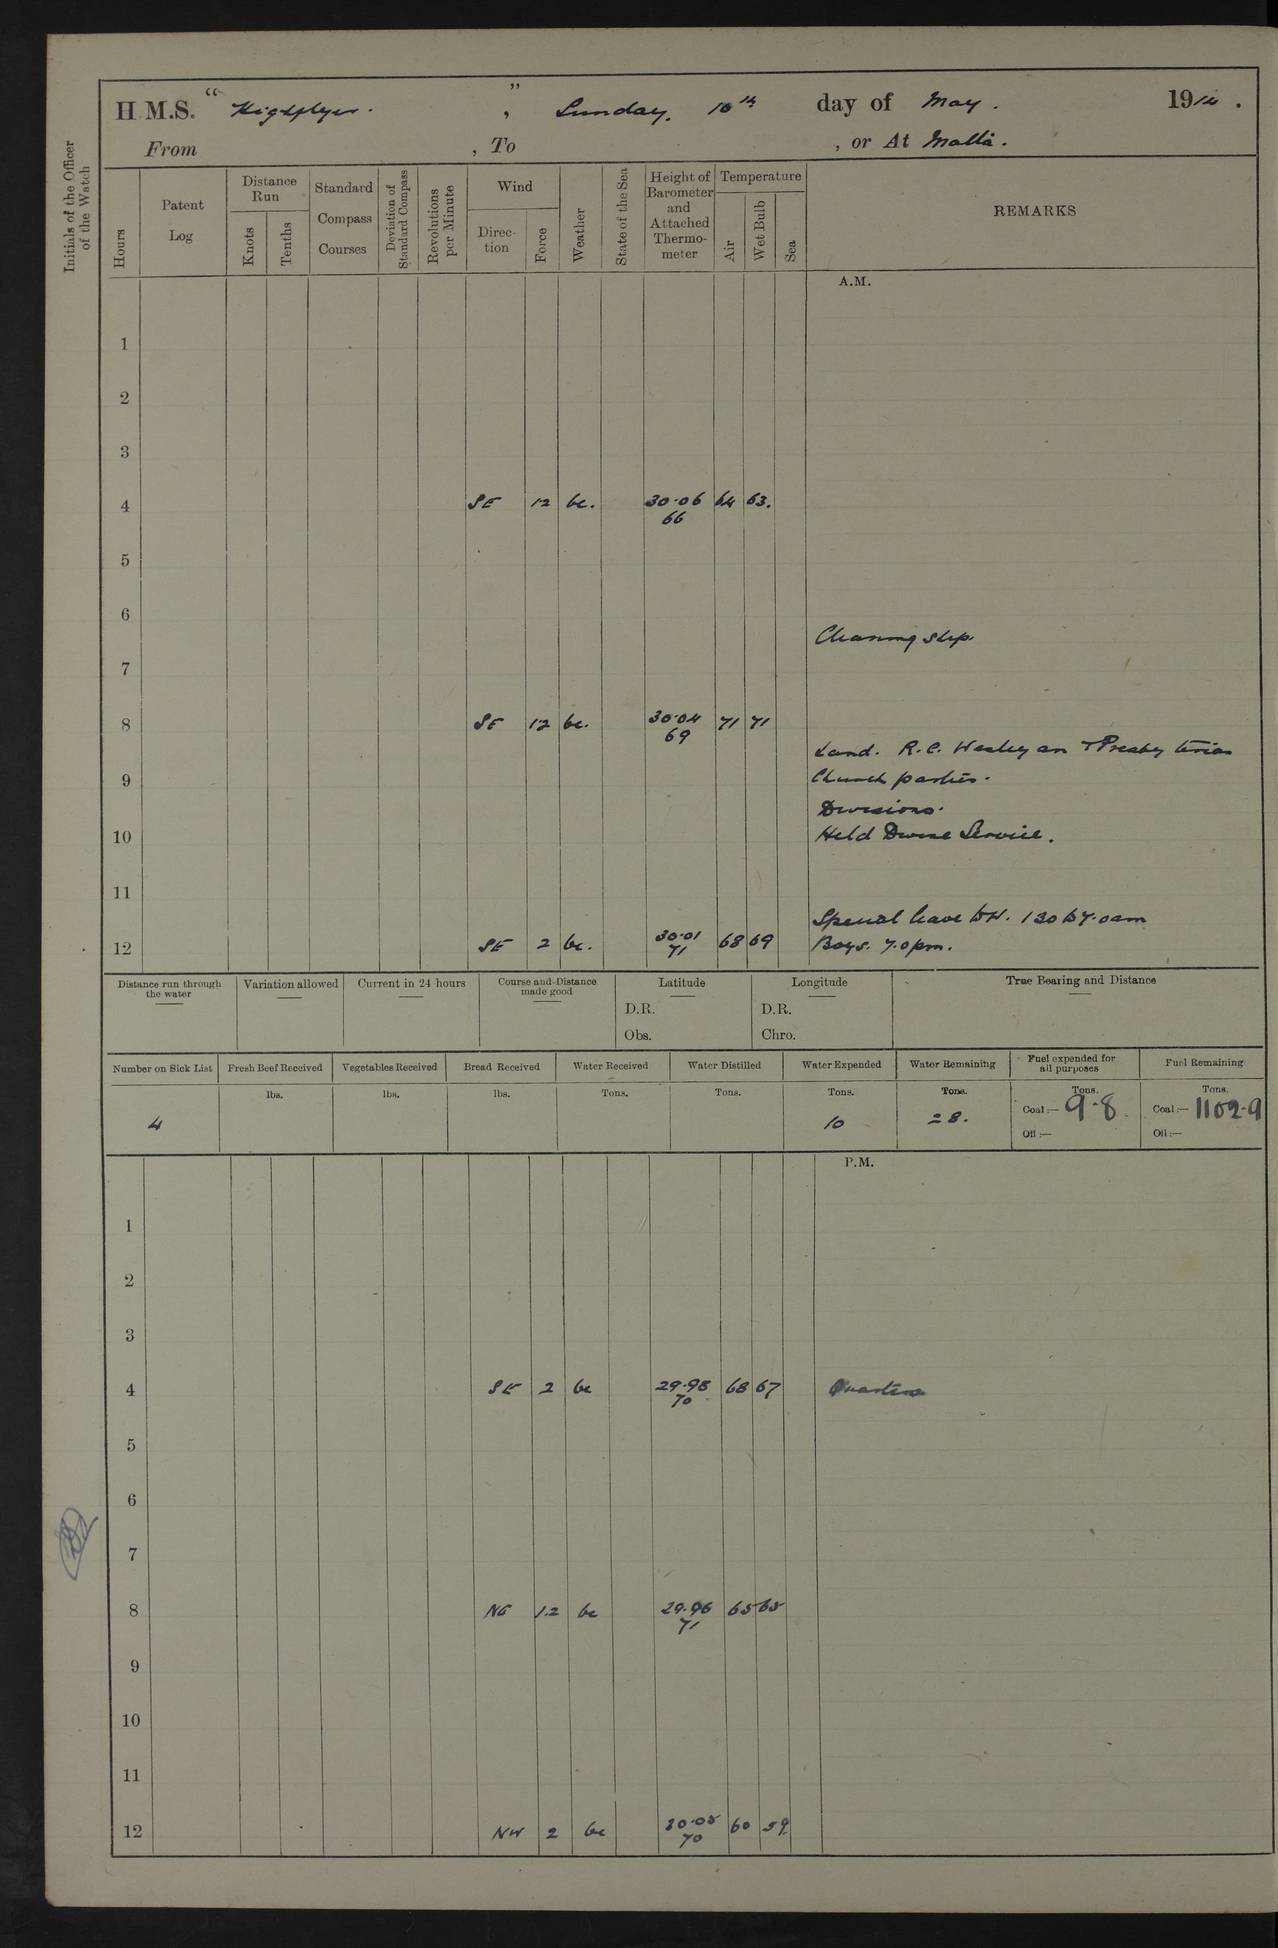 H.M.S. "Highflyer." , Sunday, 10th day of May. 1914.
From , To , or At Malta.
Initials of the Officer of the Watch
Hours
Patent Log
Distance Run
Knots
Tenths
Standard Compass Courses
Deviation of Standard Compass
Revolutions per Minute
Wind
Direction
Force
Weather
State of the Sea
Height of Barometer and Attached Thermometer
Temperature
Air
Wet Bulb
Sea
REMARKS
A.M.
1
2
3
4 SE 12 bc. 30.06 64 63.
66
5
6
Cleaning ship.
7
8 SE 12 bc. 30.04 71 71
69
Land. R.C. Wesleyan + Presbyterian
9 Church parties.
Divisions.
10 Held Divine Service.
11
Special leave to 1 30 to 7.0am
12 SE 2 bc. 30.01 68 69 Boys. 7.0pm.
71
Distance run through the water
Variation allowed
Current in 24 hours
Course and Distance made good
Latitude
D.R.
Obs.
Longitude
D.R.
Chro.
True Bearing and Distance
Number on Sick List
4
Fresh Beef Received
lbs.
Vegetables Received
lbs.
Bread Received
lbs.
Water Received
Tons.
Water Distilled
Tons.
Water Expended
Tons.
10
Water Remaining
Tons.
Fuel expended for all purposes
Tons.
Coal:— 9.8
Oil:—
Fuel Remaining
Tons.
Coal:— 1102.9
Oil:—
P.M.
1
2
3
4 SE 2 bc 29.98 68 67 Quarters
70
5
6
7
8 NE 1.2 bc 29.96 65 65
71
9
10
11
12 NW 2 bc 30.05 60 59
70